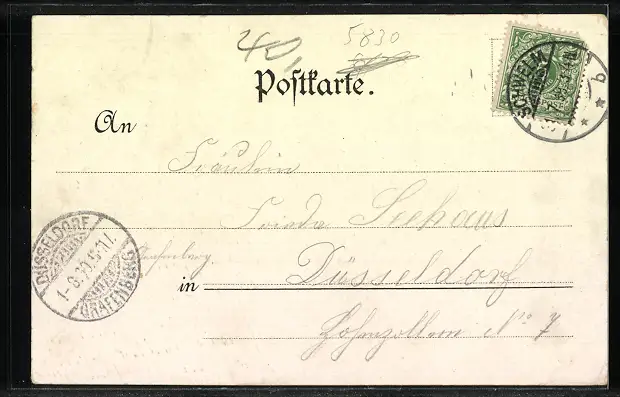 40,
5830
Postkarte.
SCHWELM
b
An
Fräulein
Frieda Seehaus
DÜSSELDORF
GRAFENBERG
Grafenberg
in Düsseldorf
Hohenzollern No 7